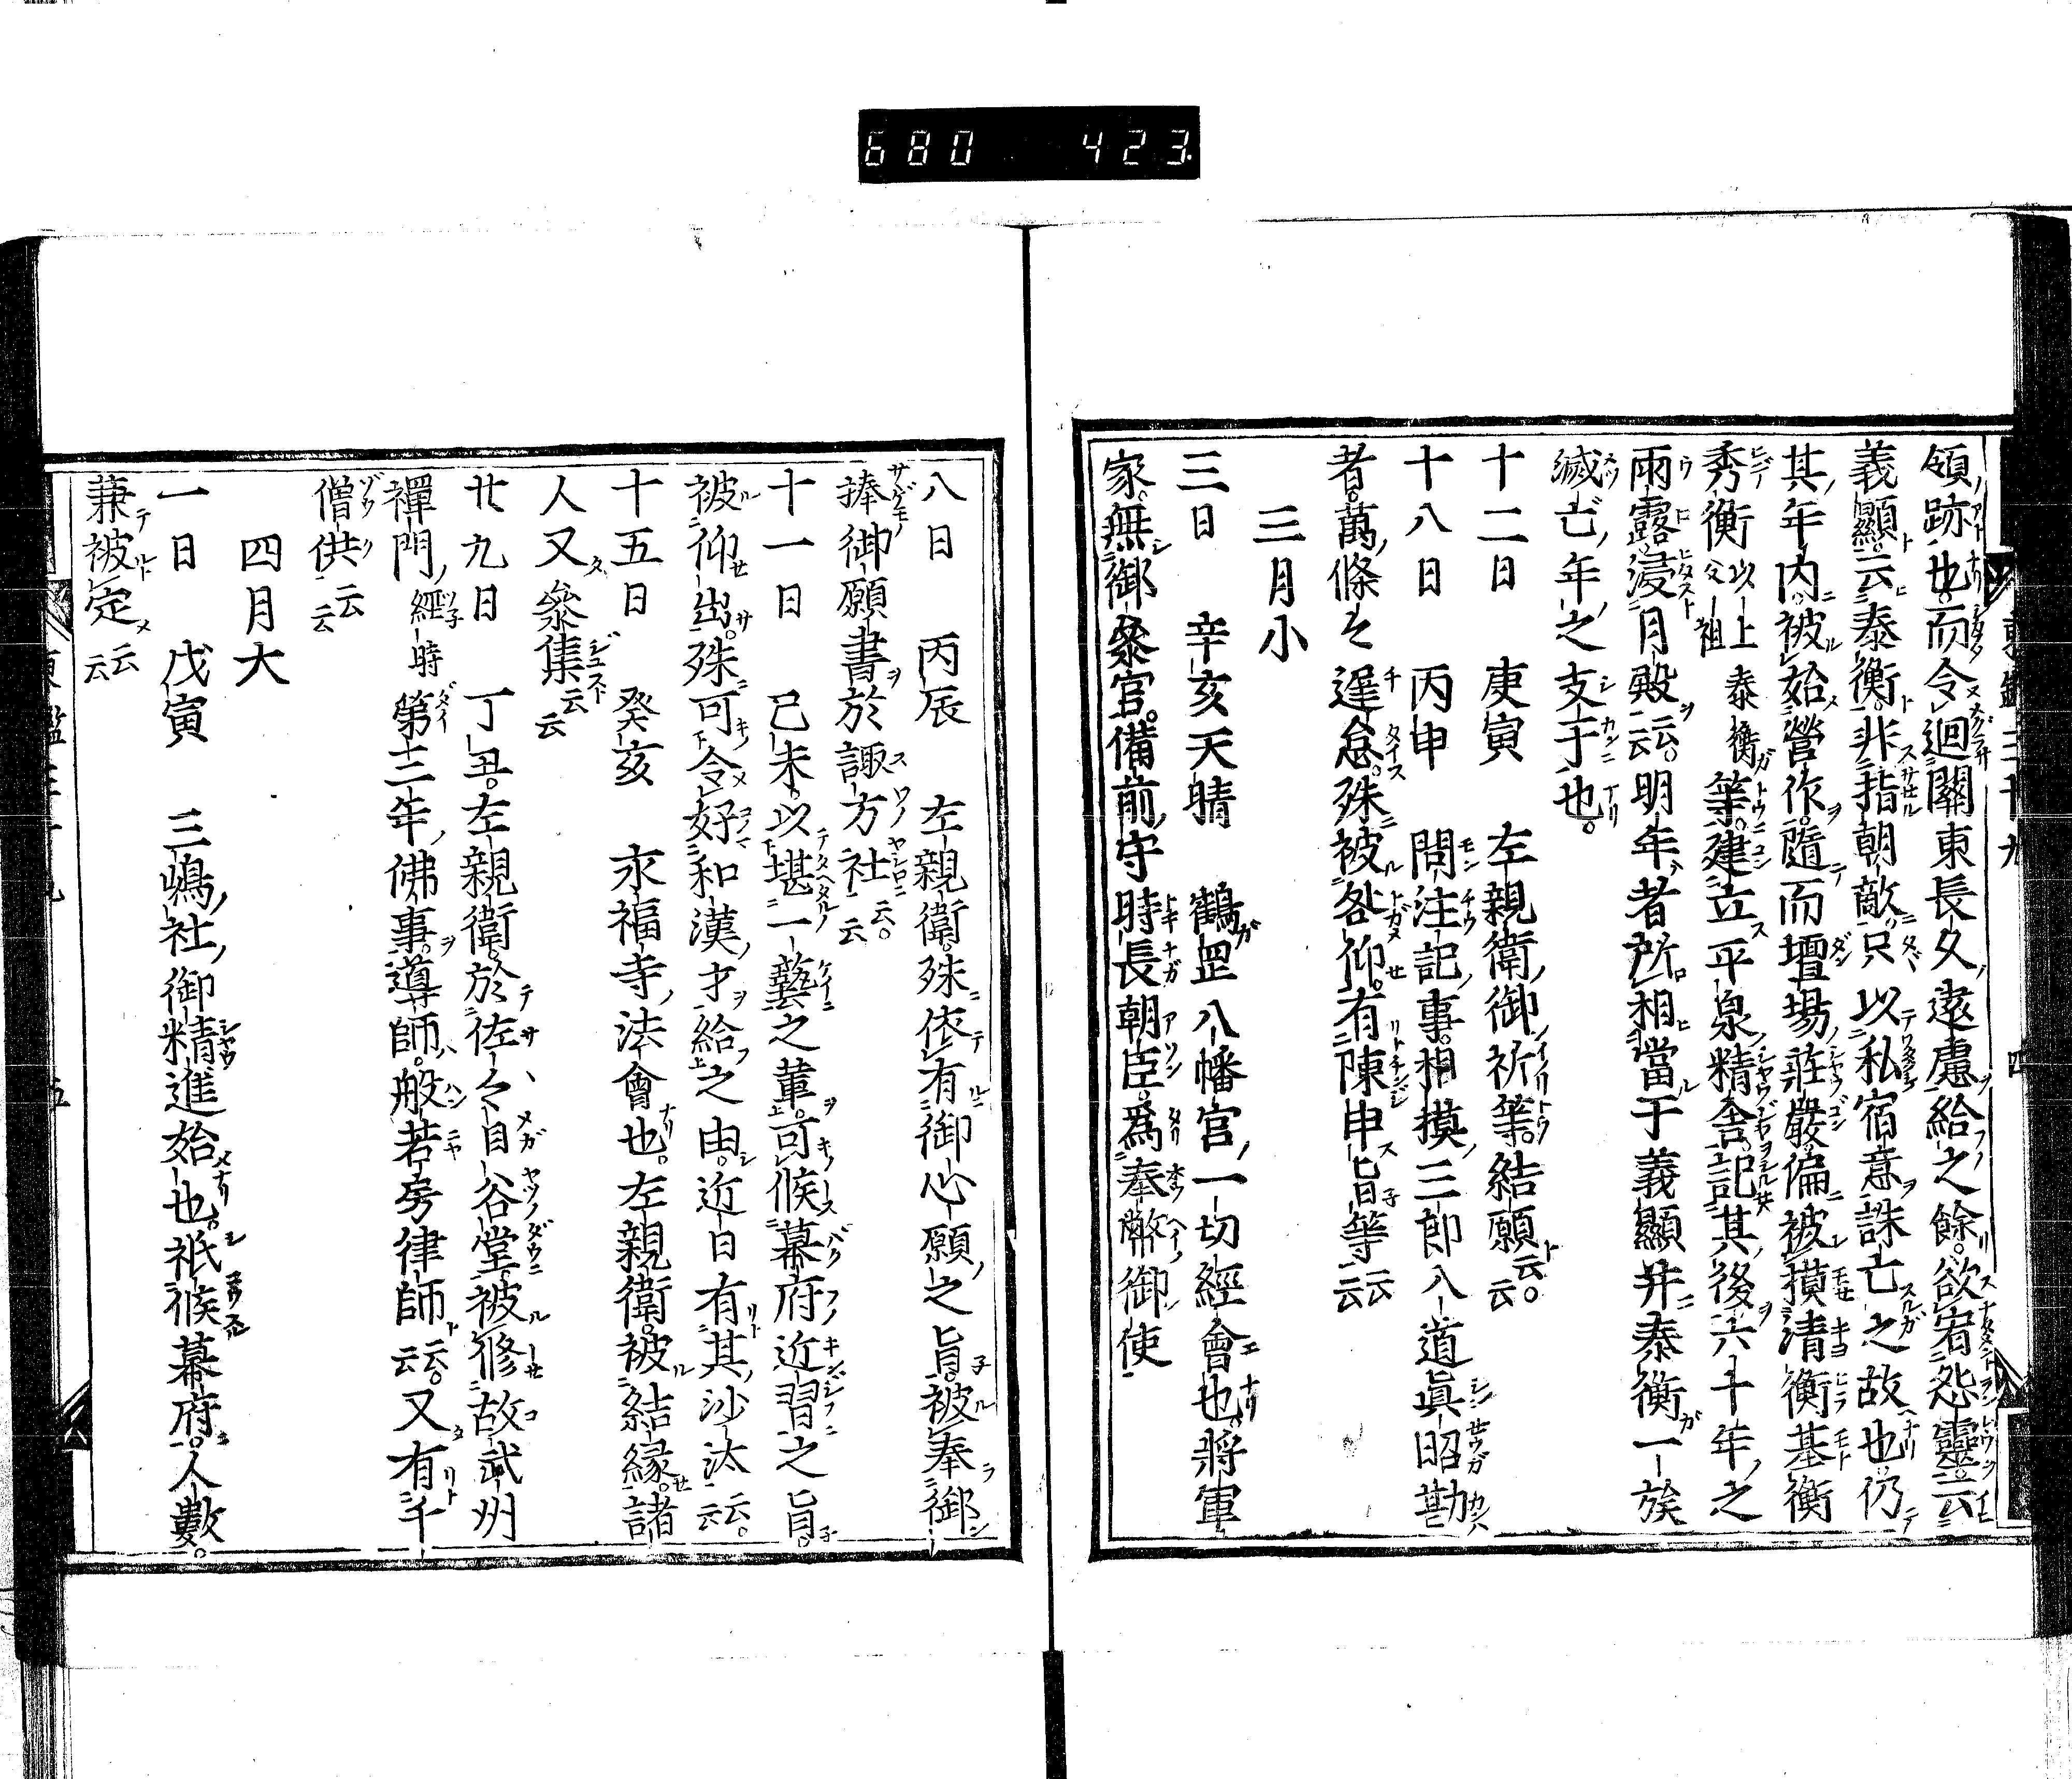 680 423
領跡也而令廻關東長久遠慮給之餘欲宥怨靈云
義顯云泰衡非指朝敵只以私宿意誅亡之故也仍
其年内被始營作隨而壇場莊嚴偏被摸清衡基衡
秀衡以上父祖泰衡等建立平泉精舎記其後六十年之
雨露浸月殿云云明年者所相當于義顯并泰衡一族
滅亡年之支于也
十二日 庚寅 左親衛御祈等結願云云
十八日 丙申 問注記事相摸三郎入道眞昭勘
者萬條々遲怠殊被咎仰有陳申旨等云云
三月小
三日 辛亥天晴 鶴岡八幡宮一切經會也將軍
家無御參宮備前守時長朝臣爲奉幣御使
八日 丙辰 左親衛殊依有御心願之旨被奉御
捧御願書於諏方社云云
十一日 己未以堪一藝之輩可候幕府近習之旨
被仰出殊可令好和漢才給之由近日有其沙汰云云
十五日 癸亥 永福寺法會也左親衛被結緣諸
人又參集云云
廿九日 丁丑左親衛於佐々目谷堂被修故武州
禪門經時第三年佛事導師般若房律師云云又有千
僧供云云
四月大
一日 戊寅 三嶋社御精進始也祇候幕府人數
兼被定云云